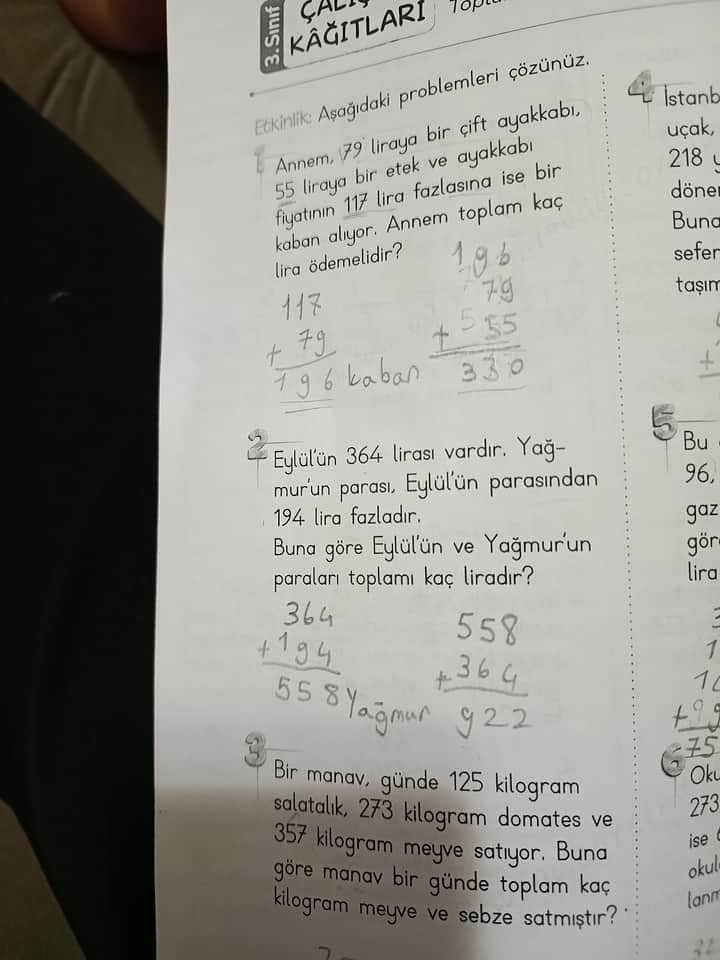 3. Sınıf
KÂĞITLARI
Etkinlik: Aşağıdaki problemleri çözünüz.
1
Annem, 79 liraya bir çift ayakkabı,
55 liraya bir etek ve ayakkabı
fiyatının 117 lira fazlasına ise bir
kaban alıyor. Annem toplam kaç
lira ödemelidir?
117
+ 79
196 kaban
196
79
+ 55
330
2
Eylül'ün 364 lirası vardır. Yağ-
mur'un parası, Eylül'ün parasından
194 lira fazladır.
Buna göre Eylül'ün ve Yağmur'un
paraları toplamı kaç liradır?
364
+194
558 Yağmur
558
+364
922
3
Bir manav, günde 125 kilogram
salatalık, 273 kilogram domates ve
357 kilogram meyve satıyor. Buna
göre manav bir günde toplam kaç
kilogram meyve ve sebze satmıştır?
4
uçak,
218
Buna
5
Bu
96,
lira
75
6
273
ise